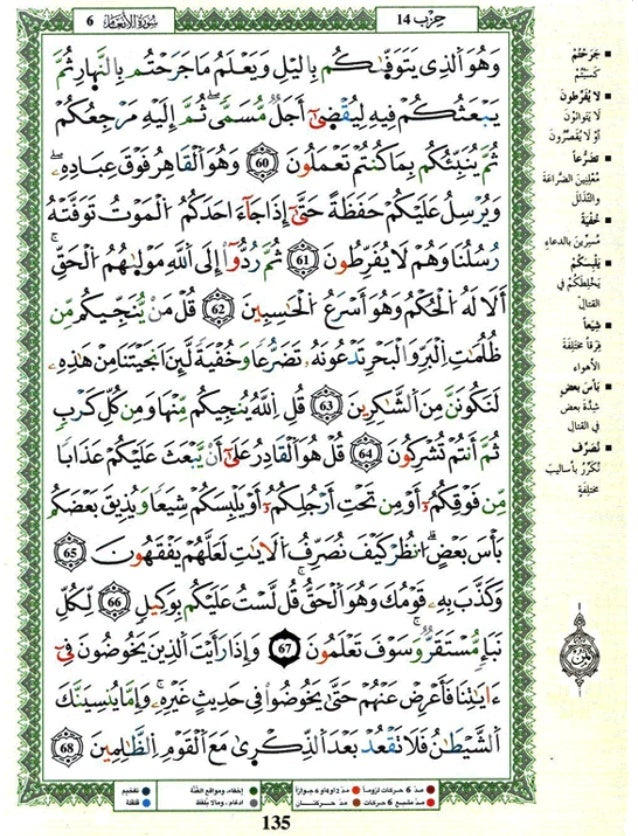 حزب 14
سُورَةُ الأَنْعَام 6
وَهُوَ اَلذِے يَتَوَفّٰيٰكُم بِاليْلِ وَيَعْلَمُ مَا جَرَحْتُم بِالنَّهارِ ثُمَّ
يَبْعَثُكُمْ فِيهِ لِيُقْضَىٰٓ أَجَلٌ مُّسَمّىۖ ثُمَّ إِلَيْهِ مَرْجِعُكُمْ
ثُمَّ يُنَبِّئُكُم بِمَا كُنتُمْ تَعْمَلُونَ 60 وَهُوَ اَلْقَاهِرُ فَوْقَ عِبَادِهِۦۖ
وَيُرْسِلُ عَلَيْكُمْ حَفَظَةً حَتَّىٰٓ إِذَا جَآءَ احَدَكُمُ اُلْمَوْتُ تَوَفَّتْهُ
رُسُلُنَا وَهُمْ لَا يُفَرِّطُونَ 61 ثُمَّ رُدُّوٓاْ إِلَى اَللَّهِ مَوْلٰيٰهُمُ اُلْحَقِّۚ
أَلَا لَهُ اُلْحُكْمُ وَهُوَ أَسْرَعُ اُلْحَاسِبِينَ 62 قُلْ مَنْ يُّنَجِّيكُم مِّن
ظُلُمَٰتِ اِلْبَرِّ وَالْبَحْرِ تَدْعُونَهُۥ تَضَرُّعاً وَخُفْيَةً لَّئِنَ اَنجَيْتَنَا مِنْ هَٰذِهِۦ
لَنَكُونَنَّ مِنَ اَلشَّٰكِرِينَ 63 قُلِ اِللَّهُ يُنجِيكُم مِّنْهَا وَمِن كُلِّ كَرْبٍ
ثُمَّ أَنتُمْ تُشْرِكُونَ 64 قُلْ هُوَ اَلْقَادِرُ عَلَىٰٓ أَنْ يَّبْعَثَ عَلَيْكُمْ عَذَاباً
مِّن فَوْقِكُمُۥٓ أَوْ مِن تَحْتِ أَرْجُلِكُمُۥٓ أَوْ يَلْبِسَكُمْ شِيَعاً وَيُذِيقَ بَعْضَكُم
بَأْسَ بَعْضٍۗ اُنظُرْ كَيْفَ نُصَرِّفُ اُلَايَٰتِ لَعَلَّهُمْ يَفْقَهُونَ 65
وَكَذَّبَ بِهِۦ قَوْمُكَ وَهُوَ اَلْحَقُّۚ قُل لَّسْتُ عَلَيْكُم بِوَكِيلٍ 66 لِّكُلِّ
نَبَإٍ مُّسْتَقَرٌّۚ وَسَوْفَ تَعْلَمُونَ 67 وَإِذَا رَأَيْتَ اَلذِينَ يَخُوضُونَ فِىٓ
ءَايَٰتِنَا فَأَعْرِضْ عَنْهُمْ حَتَّىٰ يَخُوضُواْ فِى حَدِيثٍ غَيْرِهِۦۚ وَإِمَّا يُنسِيَنَّكَ
اَلشَّيْطَٰنُ فَلَا تَقْعُدْ بَعْدَ اَلذِّكْرَىٰ مَعَ اَلْقَوْمِ اِلظَّٰلِمِينَ 68
جَرَحْتُمْ
كَسَبْتُمْ
لا يُفَرِّطُونَ
لا يَتَوانَوْنَ
أوْ لا يُقَصِّرُونَ
تضَرُّعاً
مُعْلِنِينَ الضراعَةَ
والتَّذَلُّلَ
خُفْيَةً
مُسِرِّينَ بالدعاءِ
يَلْبِسَكُمْ
يَخْلِطَكُمْ فِي
القتالِ
شِيَعاً
فِرَقاً مختلِفَةَ
الأهواءِ
بَأْسَ بَعْضٍ
شِدَّةَ بعضٍ
في القتالِ
نُصَرِّفُ
نُكَرِّرُ بأساليبَ
مختلِفَةٍ
ثمن
مدّ 6 حركات لزوماً مدّ 2 أو 4 أو 6 جوازاً
مدّ مشبع 6 حركات مدّ حركتــان
إخفاء، ومواقع الغُنَّة
ادغام، وما لا يُلفظ
تفخيم
قلقلة
135